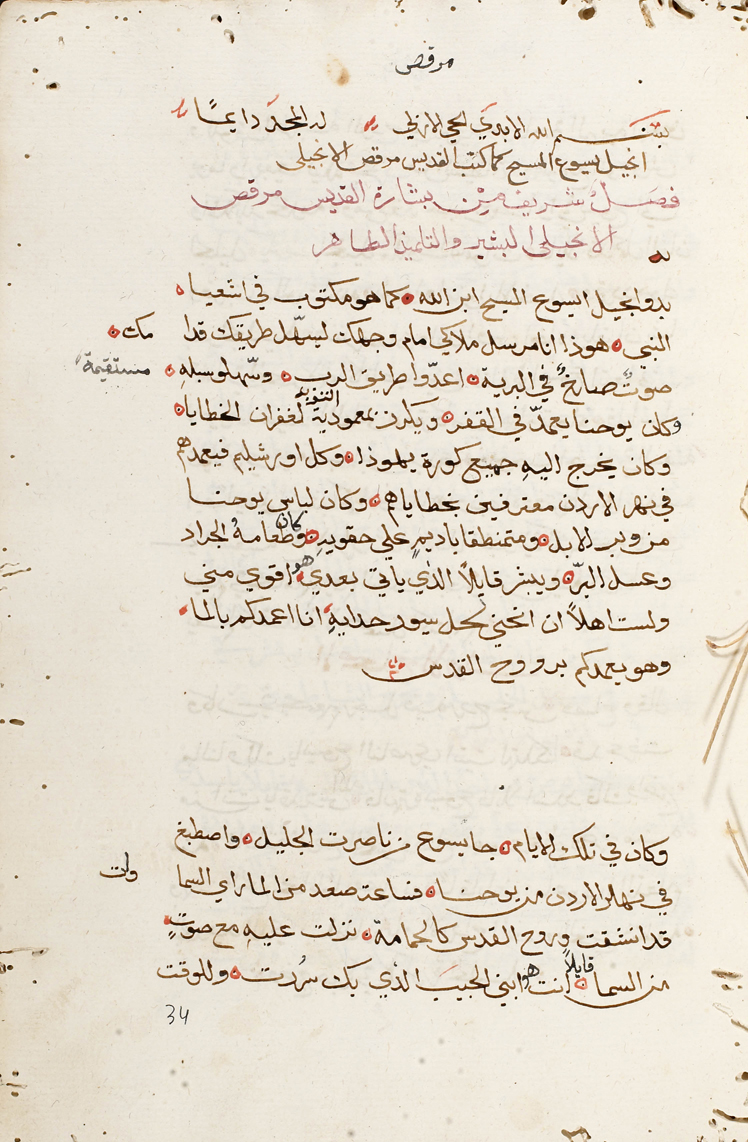 مرقص
بسم الله الابدي الحي الازلي له المجد دايمًا
انجيل يسوع المسيح كما كتب القديس مرقص الانجيلي
فصل شريف من بشارة القديس مرقص
الانجيلي البشير والتلميذ الطاهر
بدو انجيل ايسوع المسيح ابن الله كما هو مكتوب في اشعيا
النبي هوذا انا مرسل ملاكي امام وجهك ليسهّل طريقك قدا مك
صوتٌ صارخٌ في البرية اعدّوا طريق الرب وسّهلو سبله مستقيمة
وكان يوحنا يعمدّ في القفر ويكرز بمعمودية التوبة لغفران الخطايا
وكان يخرج اليهِ جميع كورة يهوذا وكل اورشليم فيعمدهم
في نهر الاردن معترفين بخطاياهم وكان لباس يوحنا
من وبر الابل ومتمنطقا باديمٍ علي حقويهِ وكان طعامهُ الجراد
وعسل البرّ ويبشر قايلاً الذي ياتي بعدي هو اقوي مني
ولست اهلاً ان انحني لحل سيور حدايهِ انا اعمدكم بالما
وهو يعمدكم بروح القدس
وكان في تلك الايام جا يسوع من ناصرت الجليل واصطبغ
في نهر الاردن من يوحنا فساعة صعد من الما راي السما وات
قد انشقت وروح القدس كالحمامة نزلت عليهِ مع صوتٍ
من السما قايلاً انت هو ابني الحبيب الذي بك سُردت وللوقت
34